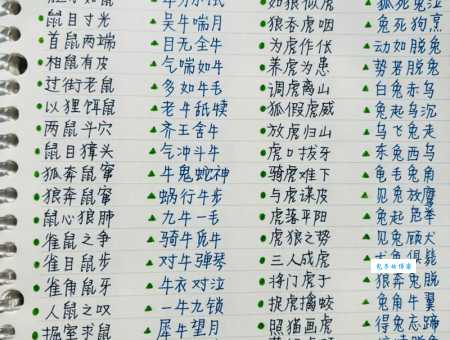 鼠目寸光
首鼠两端
相鼠有皮
过街老鼠
以狸饵鼠
两鼠斗穴
鼠目獐头
狐奔鼠窜
狼奔鼠窜
鼠心狼肺
雀鼠之争
雀目鼠步
雀角鼠牙
人鼠之叹
掘室求鼠
吴牛喘月
目无全牛
气喘如牛
多如牛毛
老牛舐犊
齐王舍牛
气冲斗牛
牛鬼蛇神
蜗行牛步
九牛一毛
骑牛觅牛
对牛弹琴
牛衣对泣
一牛九锁
犀牛望月
如狼似虎
狼吞虎咽
为虎作伥
养虎为患
调虎离山
狐假虎威
放虎归山
虎口拔牙
骑虎难下
与虎谋皮
虎落平阳
虎狼之势
三人成虎
将门虎子
捉虎擒蛟
照猫画虎
狐死兔泣
兔死狗烹
动如脱兔
势若脱兔
白兔赤乌
兔起乌沉
乌飞兔走
东兔西乌
龟毛兔角
见兔放鹰
兔起凫举
见兔顾犬
狼奔兔脱
兔角牛翼
得兔忘蹄